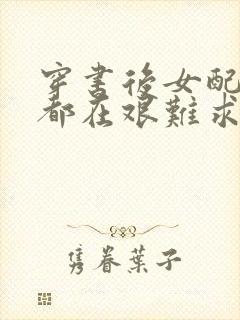 穿書後女配
都在艱難求
隽眷葉子